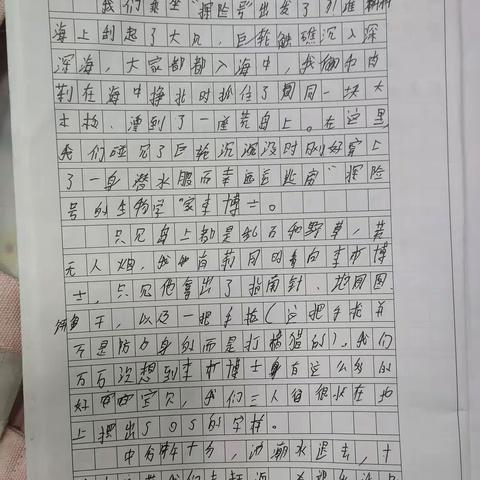 我们乘坐"探险号"出发了
海上刮起了大风,巨轮触礁沉入深
深海,大家都都入海中,我俩和肉
莉在海中挣扎时抓住了同一块大
木板,漂到了一座荒岛上。在这里,
我们碰见了巨轮沉没时刚好穿上
了一身潜水服而幸运逃离"探险
号的生物学家李博士。
只见岛上都是乱石和野草,荒
无人烟,我和肉莉同时看向李博
士,只见他拿出了指南针、地图
饼干,以及一把手枪(这把手枪并
不是防身的而是打猎的)。我们
万万没想到李博士身有这么多的
好宝贝,我们三人很快在地
上摆出SOS的字样。
中午十分,潮水退去,